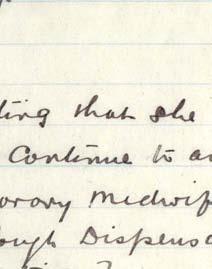 ting that she
Continue to a
orary Midwif
ough Dispensa